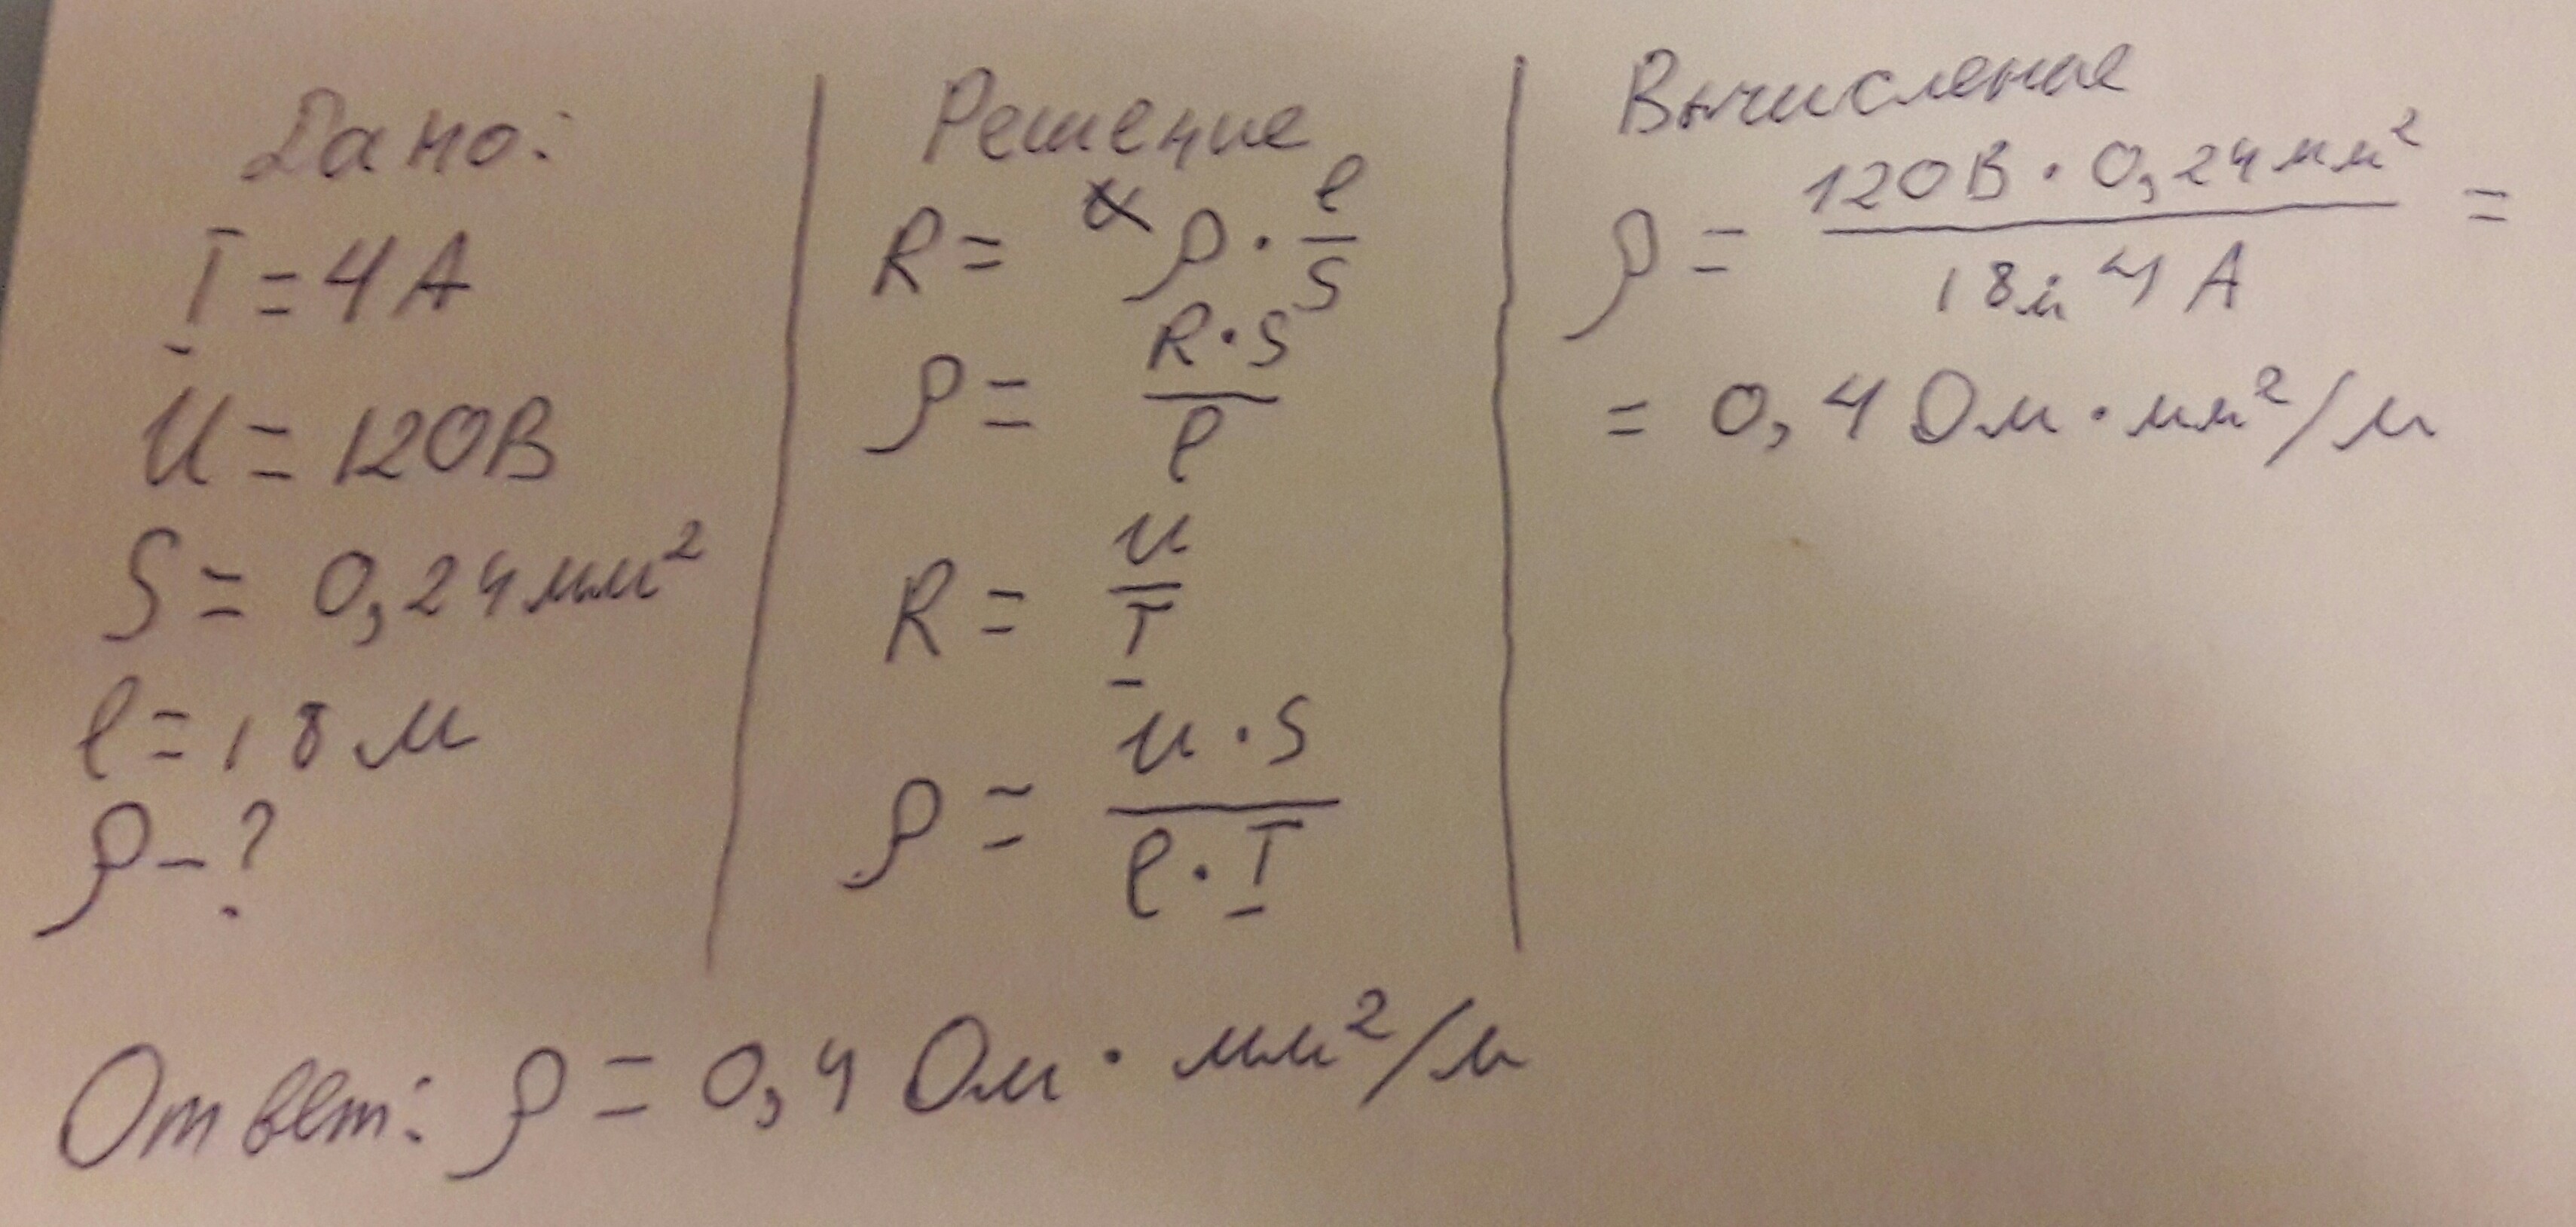 Дано:
I = 4 А
U = 120 В
S = 0,24 мм²
l = 18 м
ρ - ?
Решение
R = ρ · l/S
ρ = R · S / l
R = U/I
ρ = U · S / l · I
Вычисление
ρ = 120 В · 0,24 мм² / 18 м 4 А =
= 0,4 Ом · мм²/м
Ответ: ρ = 0,4 Ом · мм²/м